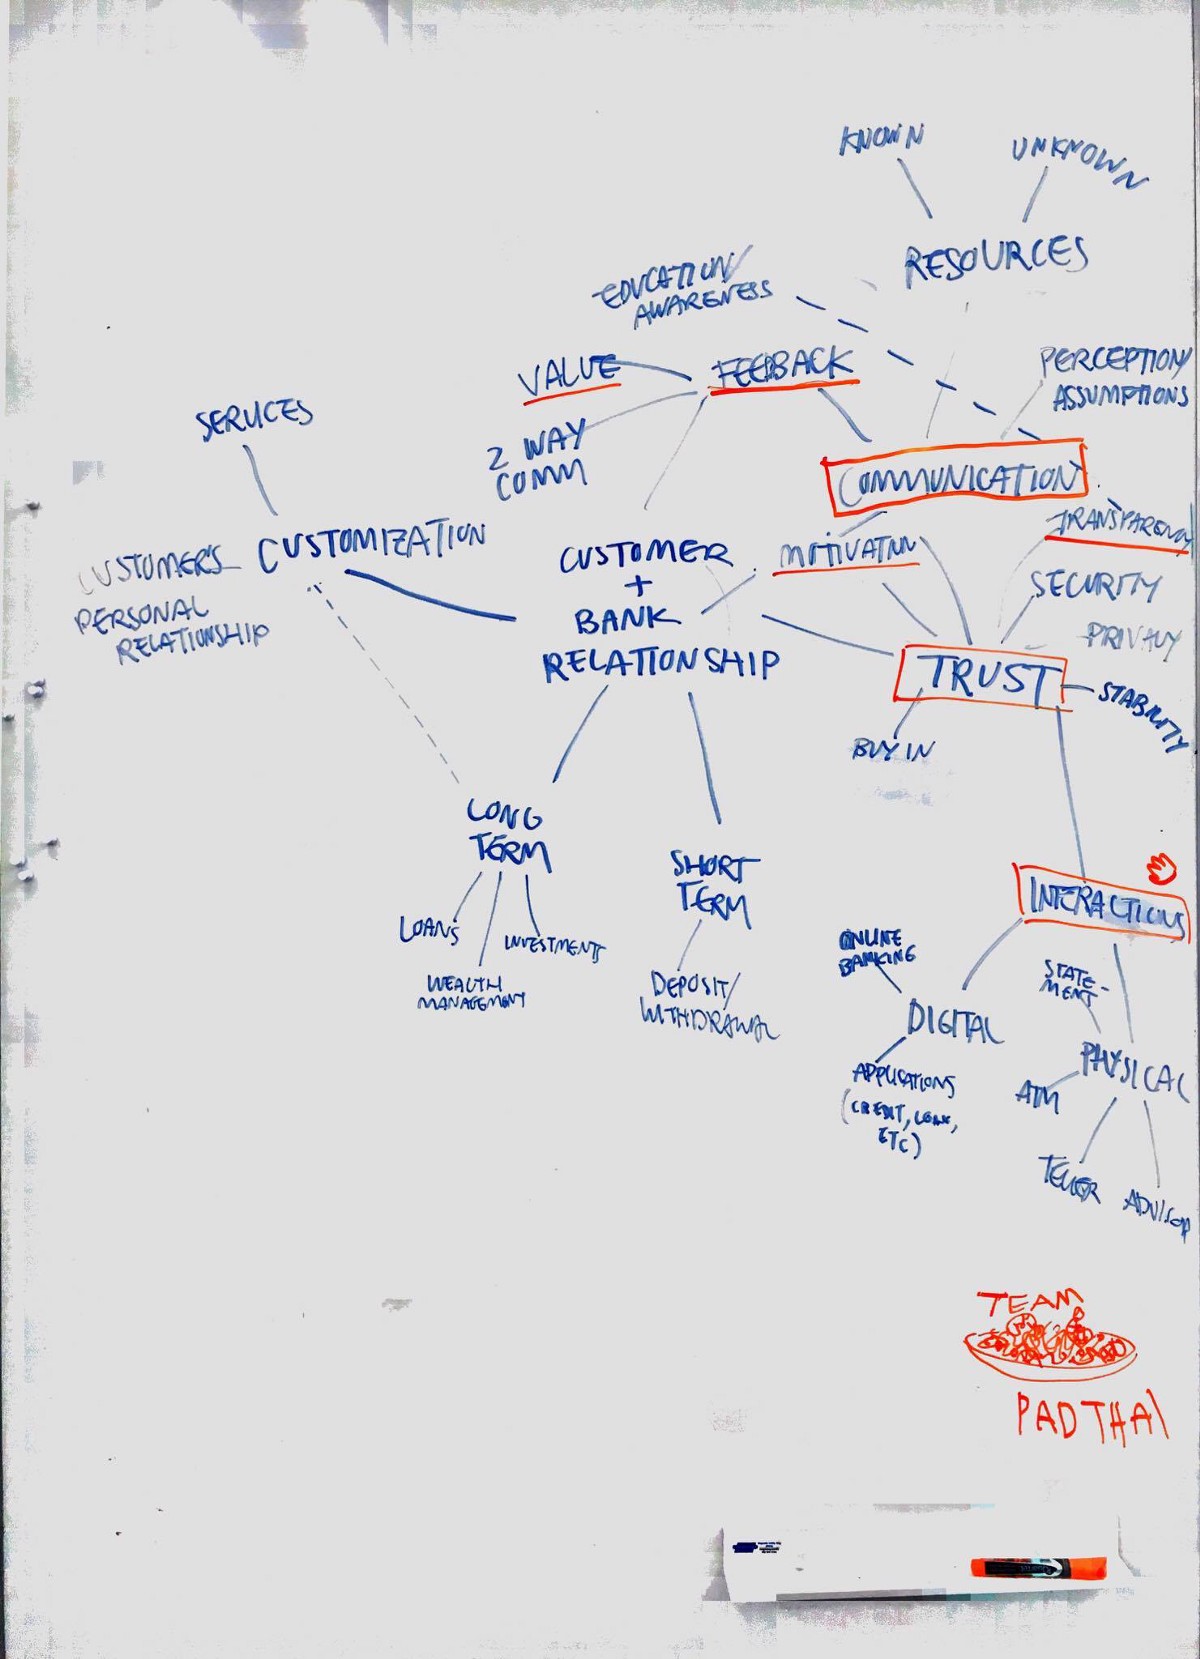 KNOWN
UNKNOWN
RESOURCES
EDUCATION/
AWARENESS
VALUE
FEEDBACK
PERCEPTION/
ASSUMPTIONS
2 WAY
COMM
COMMUNICATION
SERVICES
CUSTOMIZATION
CUSTOMER'S
PERSONAL
RELATIONSHIP
CUSTOMER
+
BANK
RELATIONSHIP
MOTIVATION
TRANSPARENCY
SECURITY
PRIVACY
TRUST
STABILITY
BUY IN
LONG
TERM
LOANS
WEALTH
MANAGEMENT
INVESTMENTS
SHORT
TERM
DEPOSIT/
WITHDRAWAL
INTERACTIONS
ONLINE
BANKING
DIGITAL
APPLICATIONS
(CREDIT, LOAN,
ETC)
STATE-
MENT
PHYSICAL
ATM
TELLER
ADVISOR
TEAM
PAD THAI